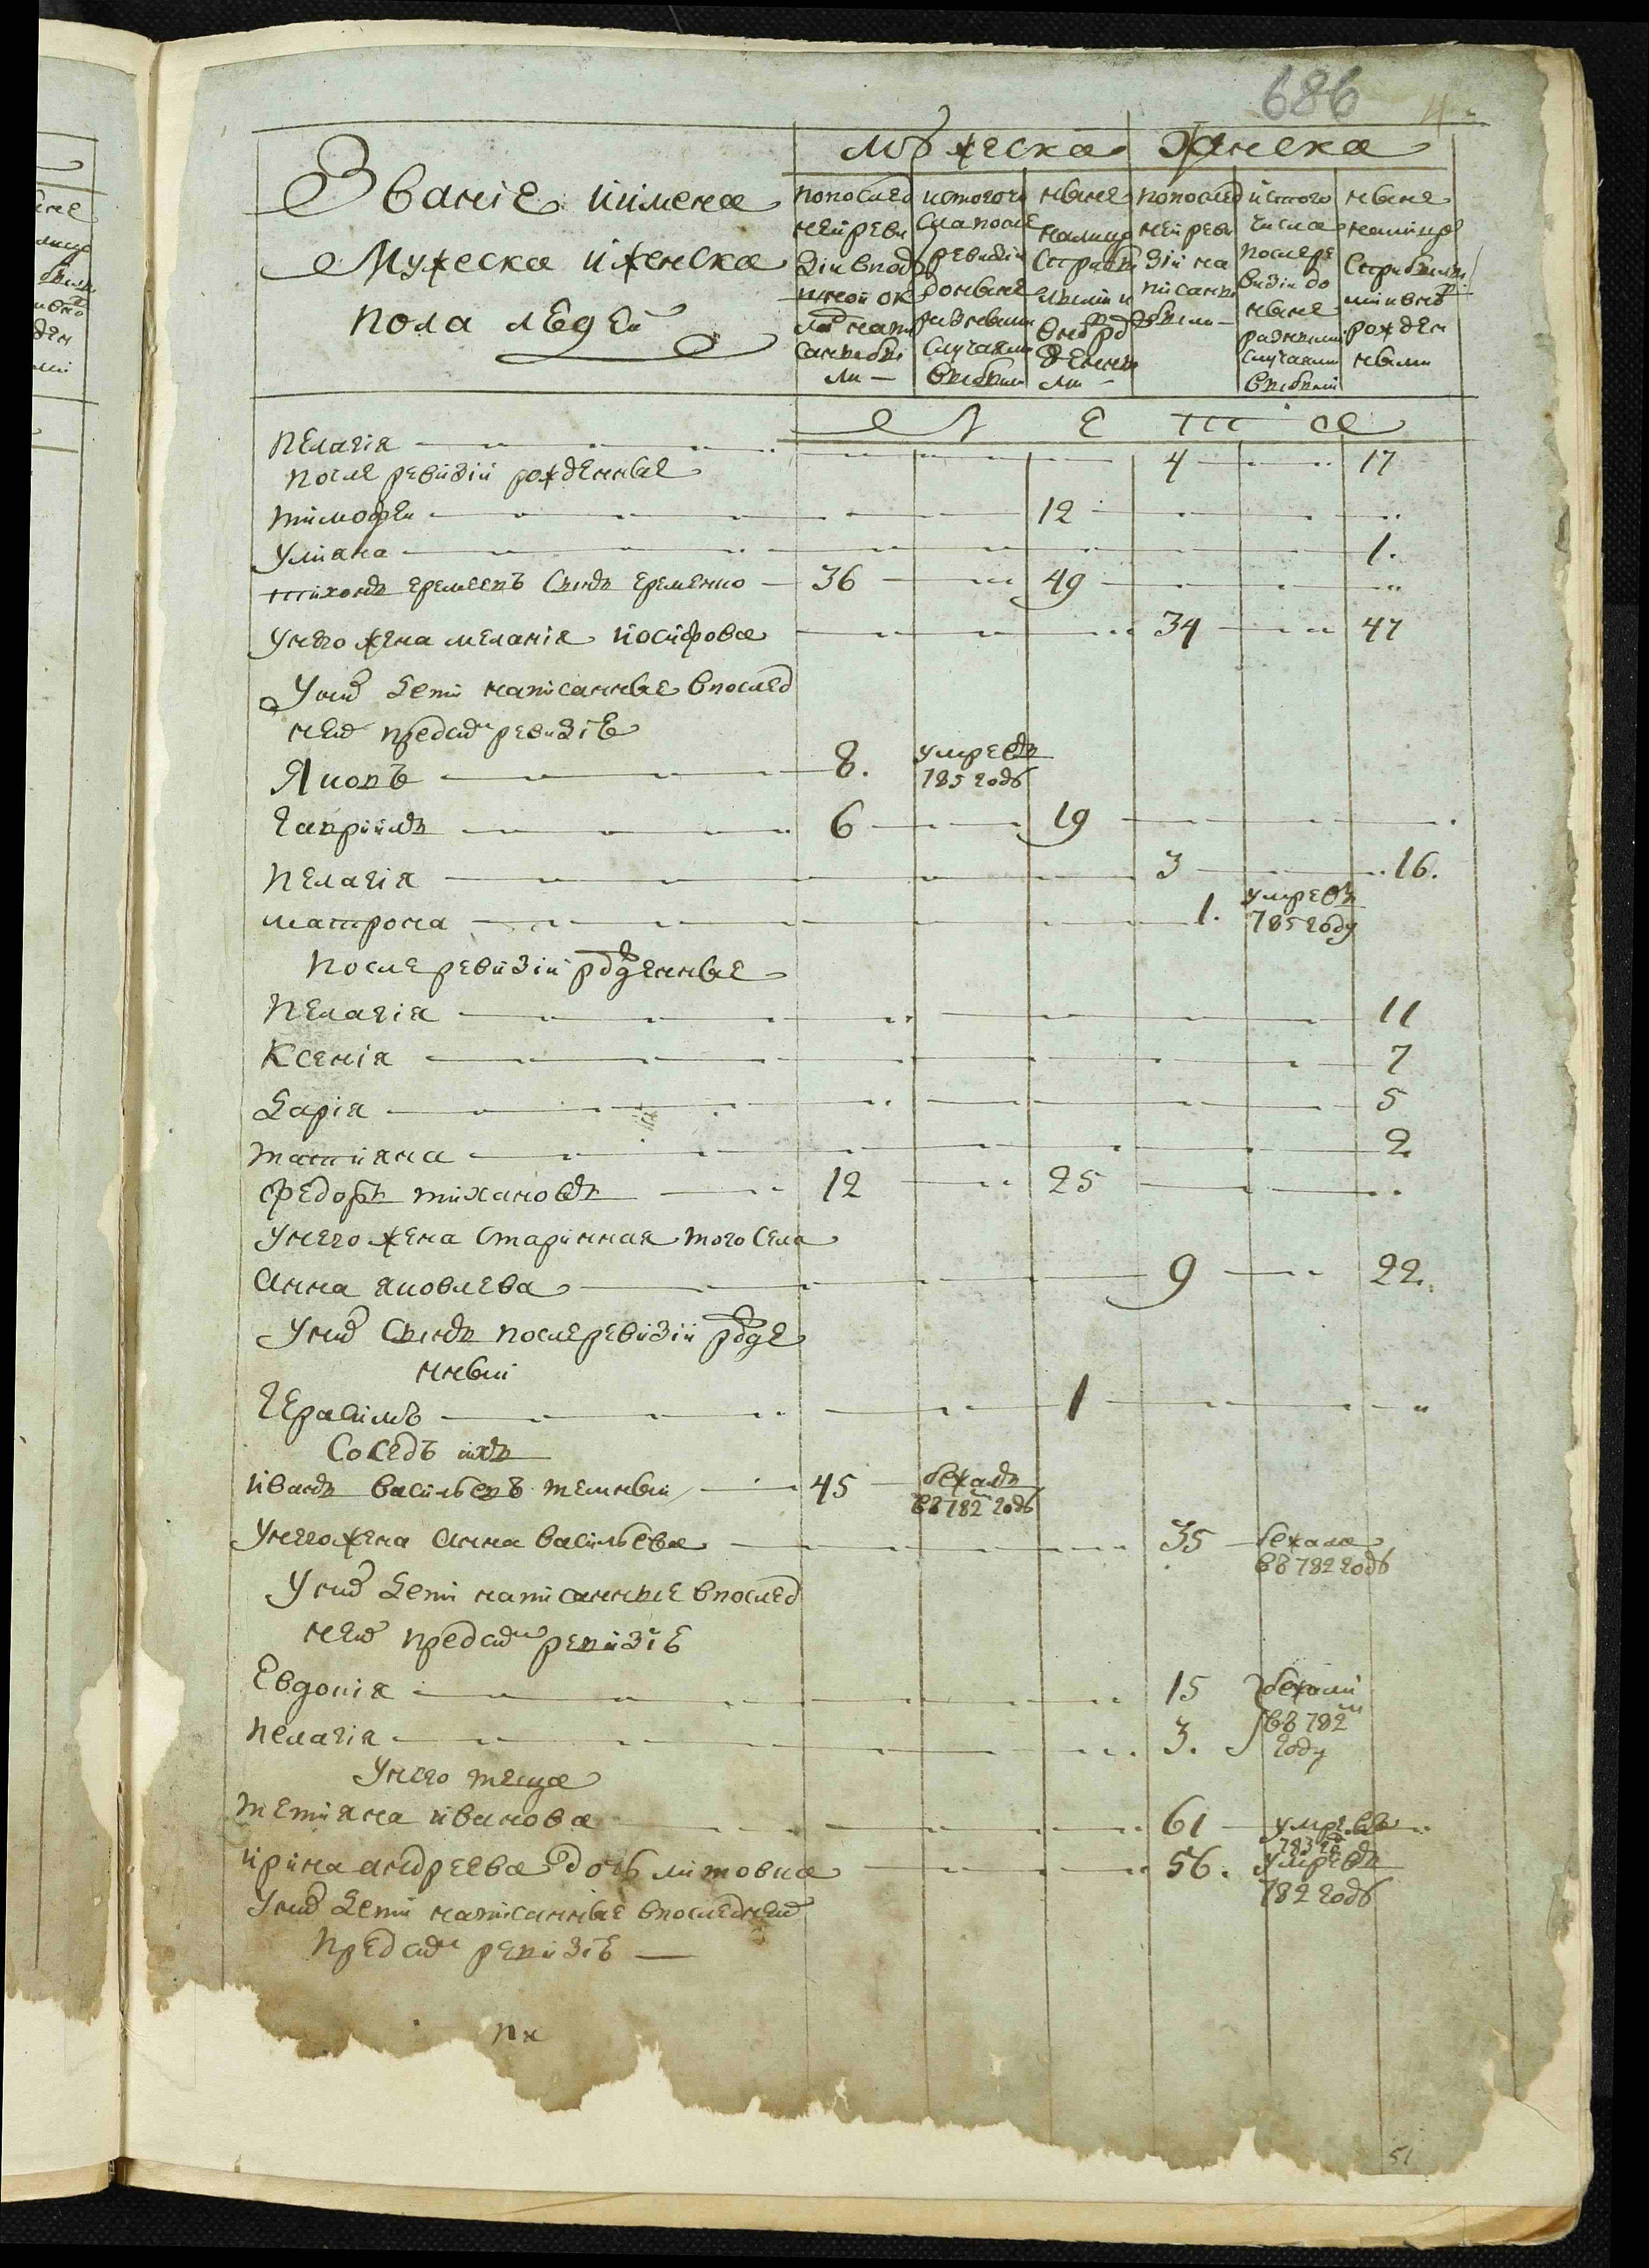 686
Званіе и имена
Мужеска и женска
пола людей
мужеска женска
по послед
ней реви
зіи в под
ушной ок
лад напи
саны бы
ли —
ис того чи
сла после
ревизіи
до ныне
разными
случаями
выбыли
ныне
на лицо
с прибы
лыми и
внов рож
денны
ми —
по послед
ней реви
зіи на
писаны
были —
ис того
числа
после ре
визіи до
ныне
разными
случаями
выбыли
ныне
на лицо
с прибылы
ми и внов
рожден
ными
Л Е Т А
Пелагія 4 17
после ревизіи рожденные
тимофеи 12
улияна 1.
тихонъ еремеевъ сынъ еременко 36 49
у него жена меланія иосифова 34 47
У них дети написанные в послед
ней пред сим ревизіе
Яковъ 8. умревъ
785 году
гавриилъ 6 19
пелагія 3 16.
матрона 1. умревъ
785 году
после ревизіи рожденные
пелагія 11
ксенія 7
дарія 5
татияна 2
федоръ тихановъ 12 25
у него жена старинная того села
анна яковлева 9 22.
У них сынъ после ревизіи рожде
нный
герасимъ 1
соседъ ихъ
иванъ васильевъ темный 45 бежалъ
въ 782 году
у него жена анна васильева 35 бежала
въ 782 году
У них дети написанные в послед
ней пред сим ревизіе
Евдокія 15 бежали
пелагія 3. въ 782
году
У него теща
тетияна иванова 61 умревъ
783 го
ирина андреева дочь литовка 56. умревъ
782 году
У них дети написанные в последней
пред сим ревизіе —
51